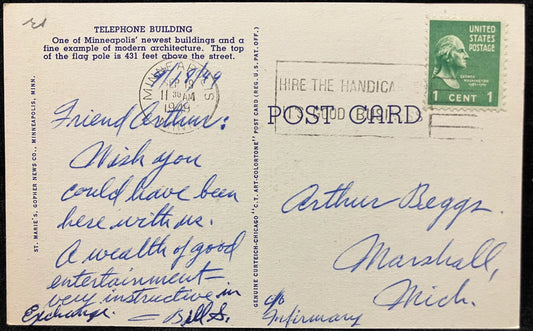 TELEPHONE BUILDING
One of Minneapolis' newest buildings and a
fine example of modern architecture. The top
of the flag pole is 431 feet above the street.
9/18/49
MINNEAPOLIS
SEP 19
11 30 AM
1949
MINN.
HIRE THE HANDICA
IT'S GOOD BUSI
UNITED
STATES
POSTAGE
GEORGE
WASHINGTON
1 CENT 1
POST CARD
Friend Arthur:
Wish you
could have been
here with us.
A wealth of good
entertainment
very instructive in
Exchange. — Bill S.
Arthur Beggs.
Marshall,
Mich.
c/o
Infirmary
ST. MARIE'S, GOPHER NEWS CO., MINNEAPOLIS, MINN.
GENUINE CURTEICH-CHICAGO "C.T. ART-COLORTONE" POST CARD (REG. U.S. PAT. OFF.)